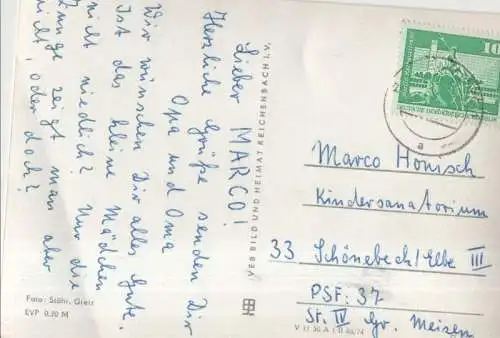 Lieber MARCO!
Herzliche Grüße senden Dir
Opa und Oma
Wir wünschen Dir alles Gute.
Ist das kleine Mädchen
nicht niedlich? Nur die
Zunge zeigt man aber
nicht, oder doch?
Foto: Stöhr, Greiz
EVP 0,20 M
VEB BILD UND HEIMAT REICHENBACH I.V.
V 11 50 A 1
10
Marco Hönisch
Kindersanatorium
33 Schönebeck/Elbe III
PSF: 37
St. IV Gr. Meisen